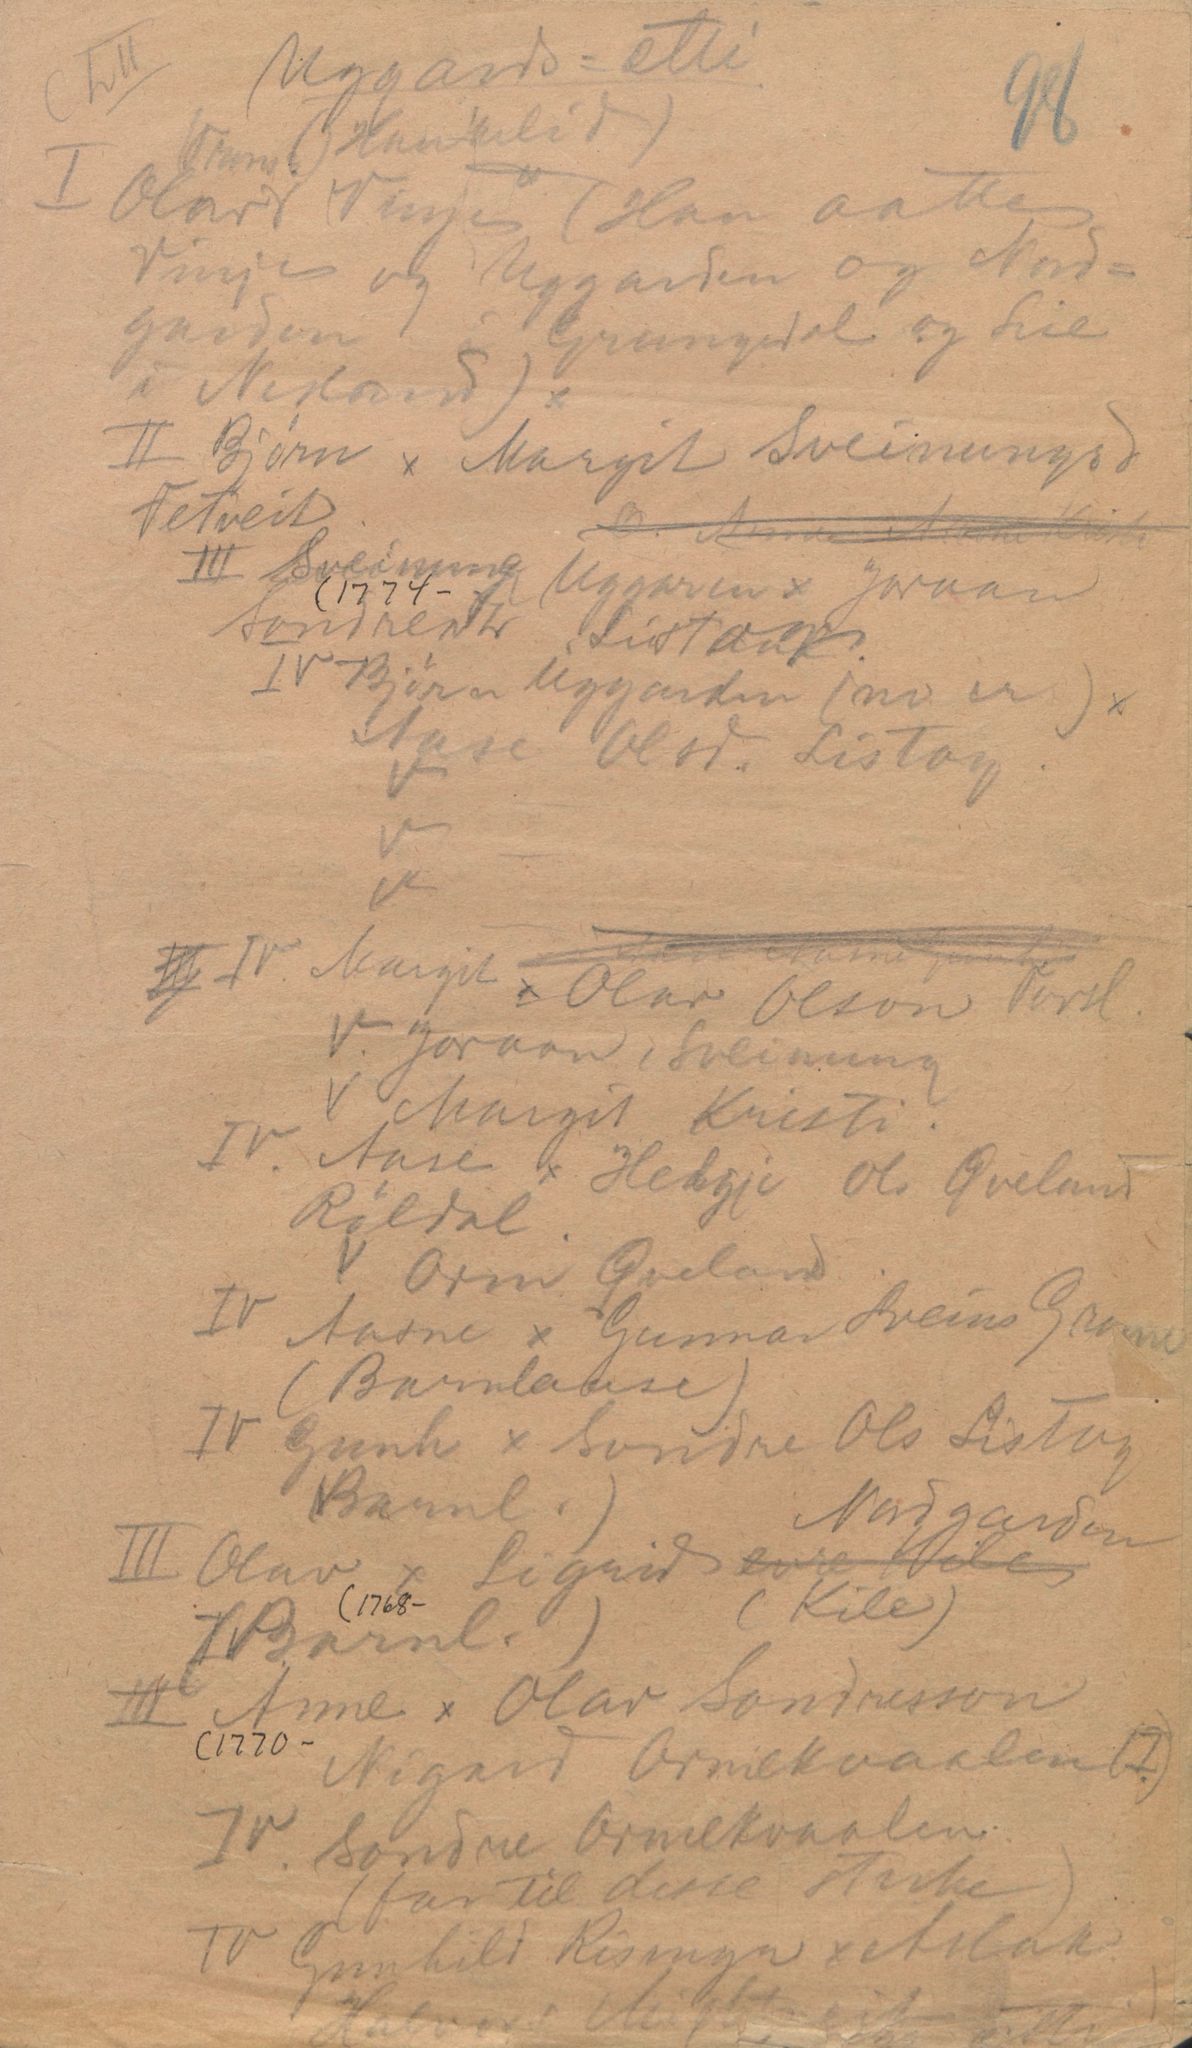 Uggards-etti
98
(Haukelid)
I Olav Vinje (Han aatte
Vinje og Uggarden og Nord=
garden i Grungedal og Lie
i Nesland) x
II Bjørn x Margit Sveinungsd
Tetveit
III Sveinung Uggaren x Joraan
(1774-
Sondresdtr Listaag.
IV Bjørn Uggarden (no er) x
Aase Olsd. Listog.
V
V
V
III IV. Margit x Olav Olson
V. Joraan, Sveinung
V Margit Kristi.
IV. Aase x Helgje Ols Qveland
Røldal.
V Orm Qveland.
IV Aasne x Gunnar Sveins
(Barnlause)
IV Gunh x Sondre Ols Listog
(Barnl.)
Nordgarden
III Olav x Sigrid
(1768-
(Kile)
Barnl.)
III Anne x Olav Sondresson
(1770-
Nigard Ormekvaalen (I)
IV. Sondre Ormekvaalen.
(far til desse sterke)
IV Gunhild x Aslak
Halvors